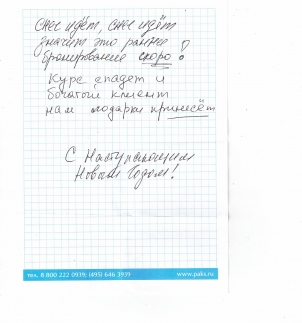 Снег идёт, снег идёт
значит это раннее
бронирование скоро!
Курс спадет и
богатый клиент
нам подарки принесёт
С Наступающим
Новым Годом!
тел. 8 800 222 0939; (495) 646 3939
www.palis.ru